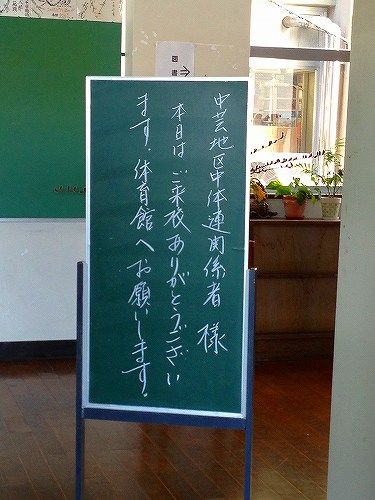 中芸地区中体連関係者 様
本日はご来校ありがとうござい
ます。体育館へお願いします。
図書